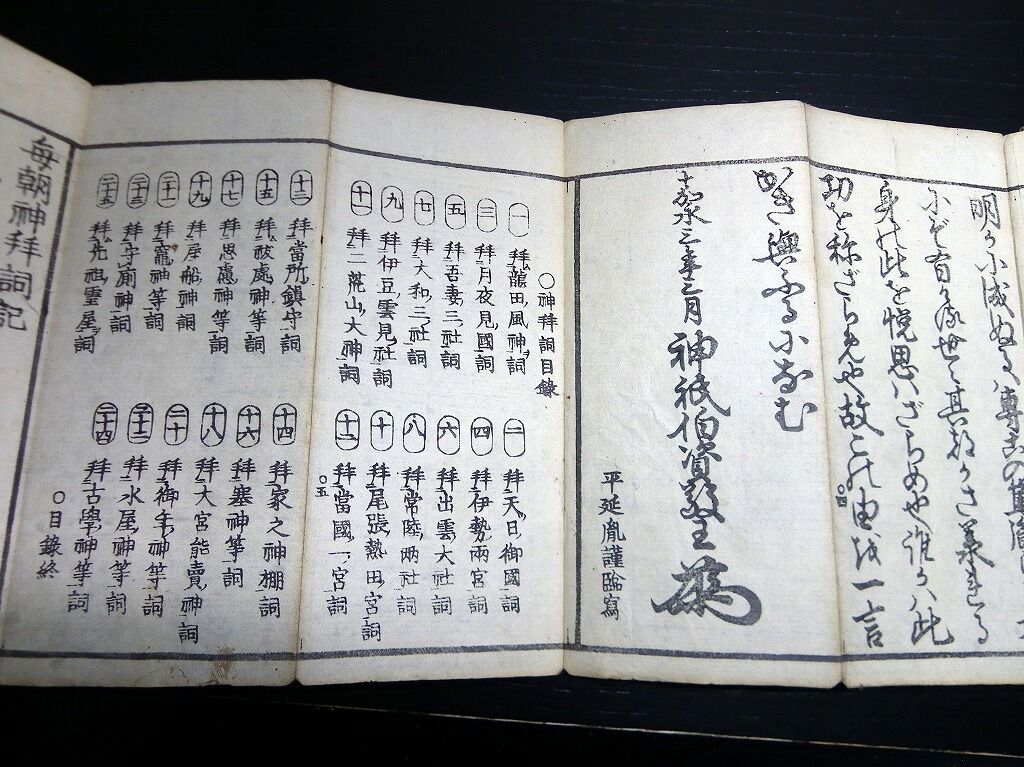 明らかに成ぬるハ専
身に此を悦思ハざらめや誰かハ此
功を称ざらめや故この由を一言
かき与ふるになむ
嘉永三年三月 神祇伯資敬王
平延胤謹臨寫
○神拜詞目錄
一 拜龍田風神詞
二 拜天日御國詞
三 拜月夜見國詞
四 拜伊勢兩宮詞
五 拜吾妻三社詞
六 拜出雲大社詞
七 拜大和三社詞
八 拜常陸兩社詞
九 拜伊豆雲見社詞
十 拜尾張熱田宮詞
十一 拜二荒山大神詞
十二 拜當國一宮詞
○五
十三 拜當所鎮守詞
十四 拜家之神棚詞
十五 拜祓處神等詞
十六 拜塞神等詞
十七 拜思慮神等詞
十八 拜大宮能賣神詞
十九 拜屋船神詞
二十 拜御年神等詞
二十一 拜竈神等詞
二十二 拜水屋神等詞
二十三 拜守廁神詞
二十四 拜古學神等詞
二十五 拜先祖靈屋詞
○目錄終
每朝神拜詞記